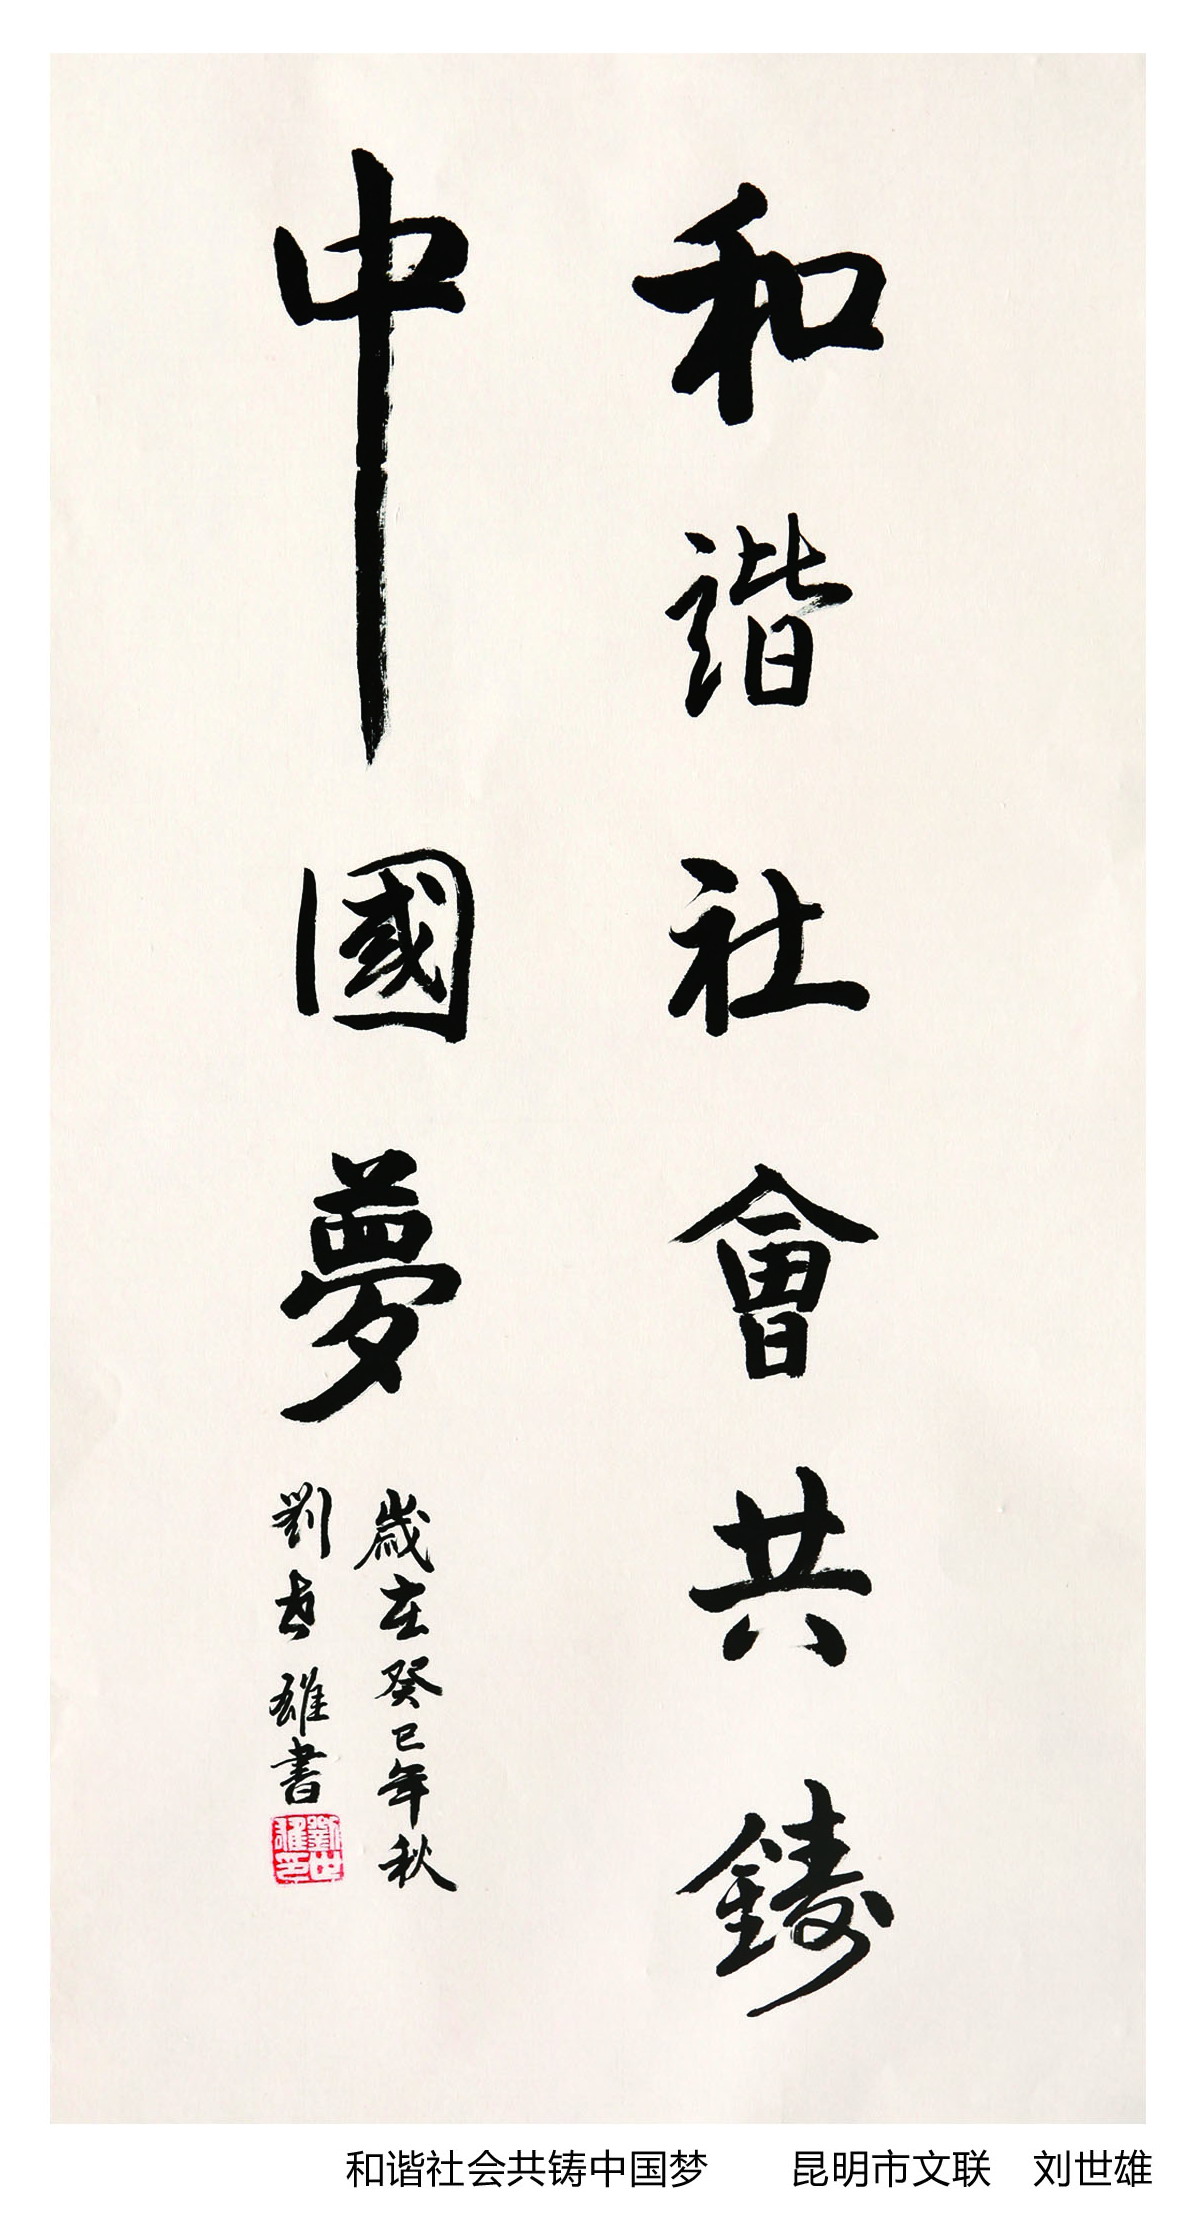 和諧社會共鑄
中國夢
歲在癸巳年秋
劉世雄書
劉世雄印
和谐社会共铸中国梦 昆明市文联 刘世雄